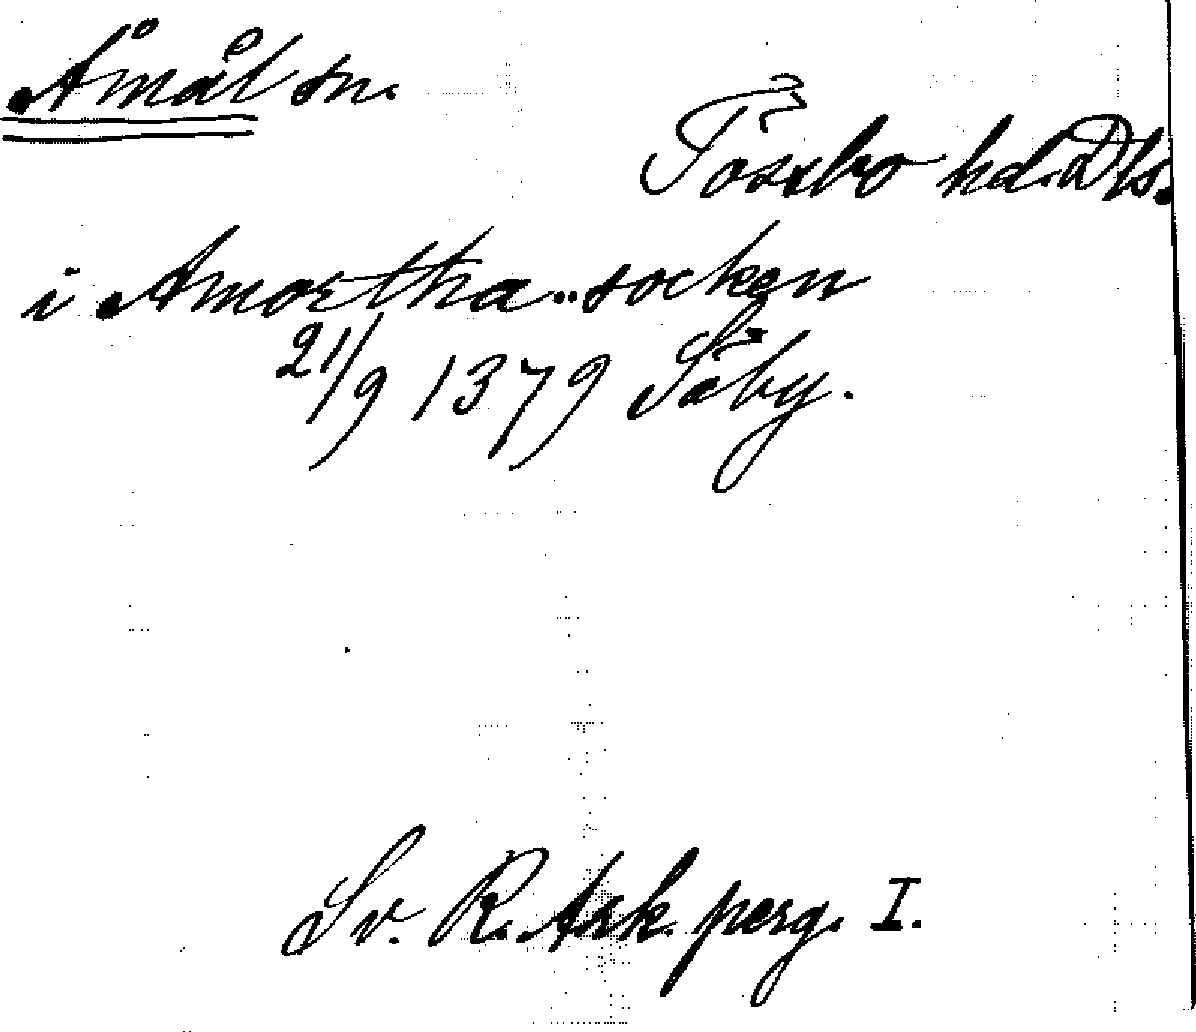 Åmål sn.
Tössbo hd. Dls.
i Amoetha socken
21/9 1379 Säby.
Sv. R. Ark. perg. I.